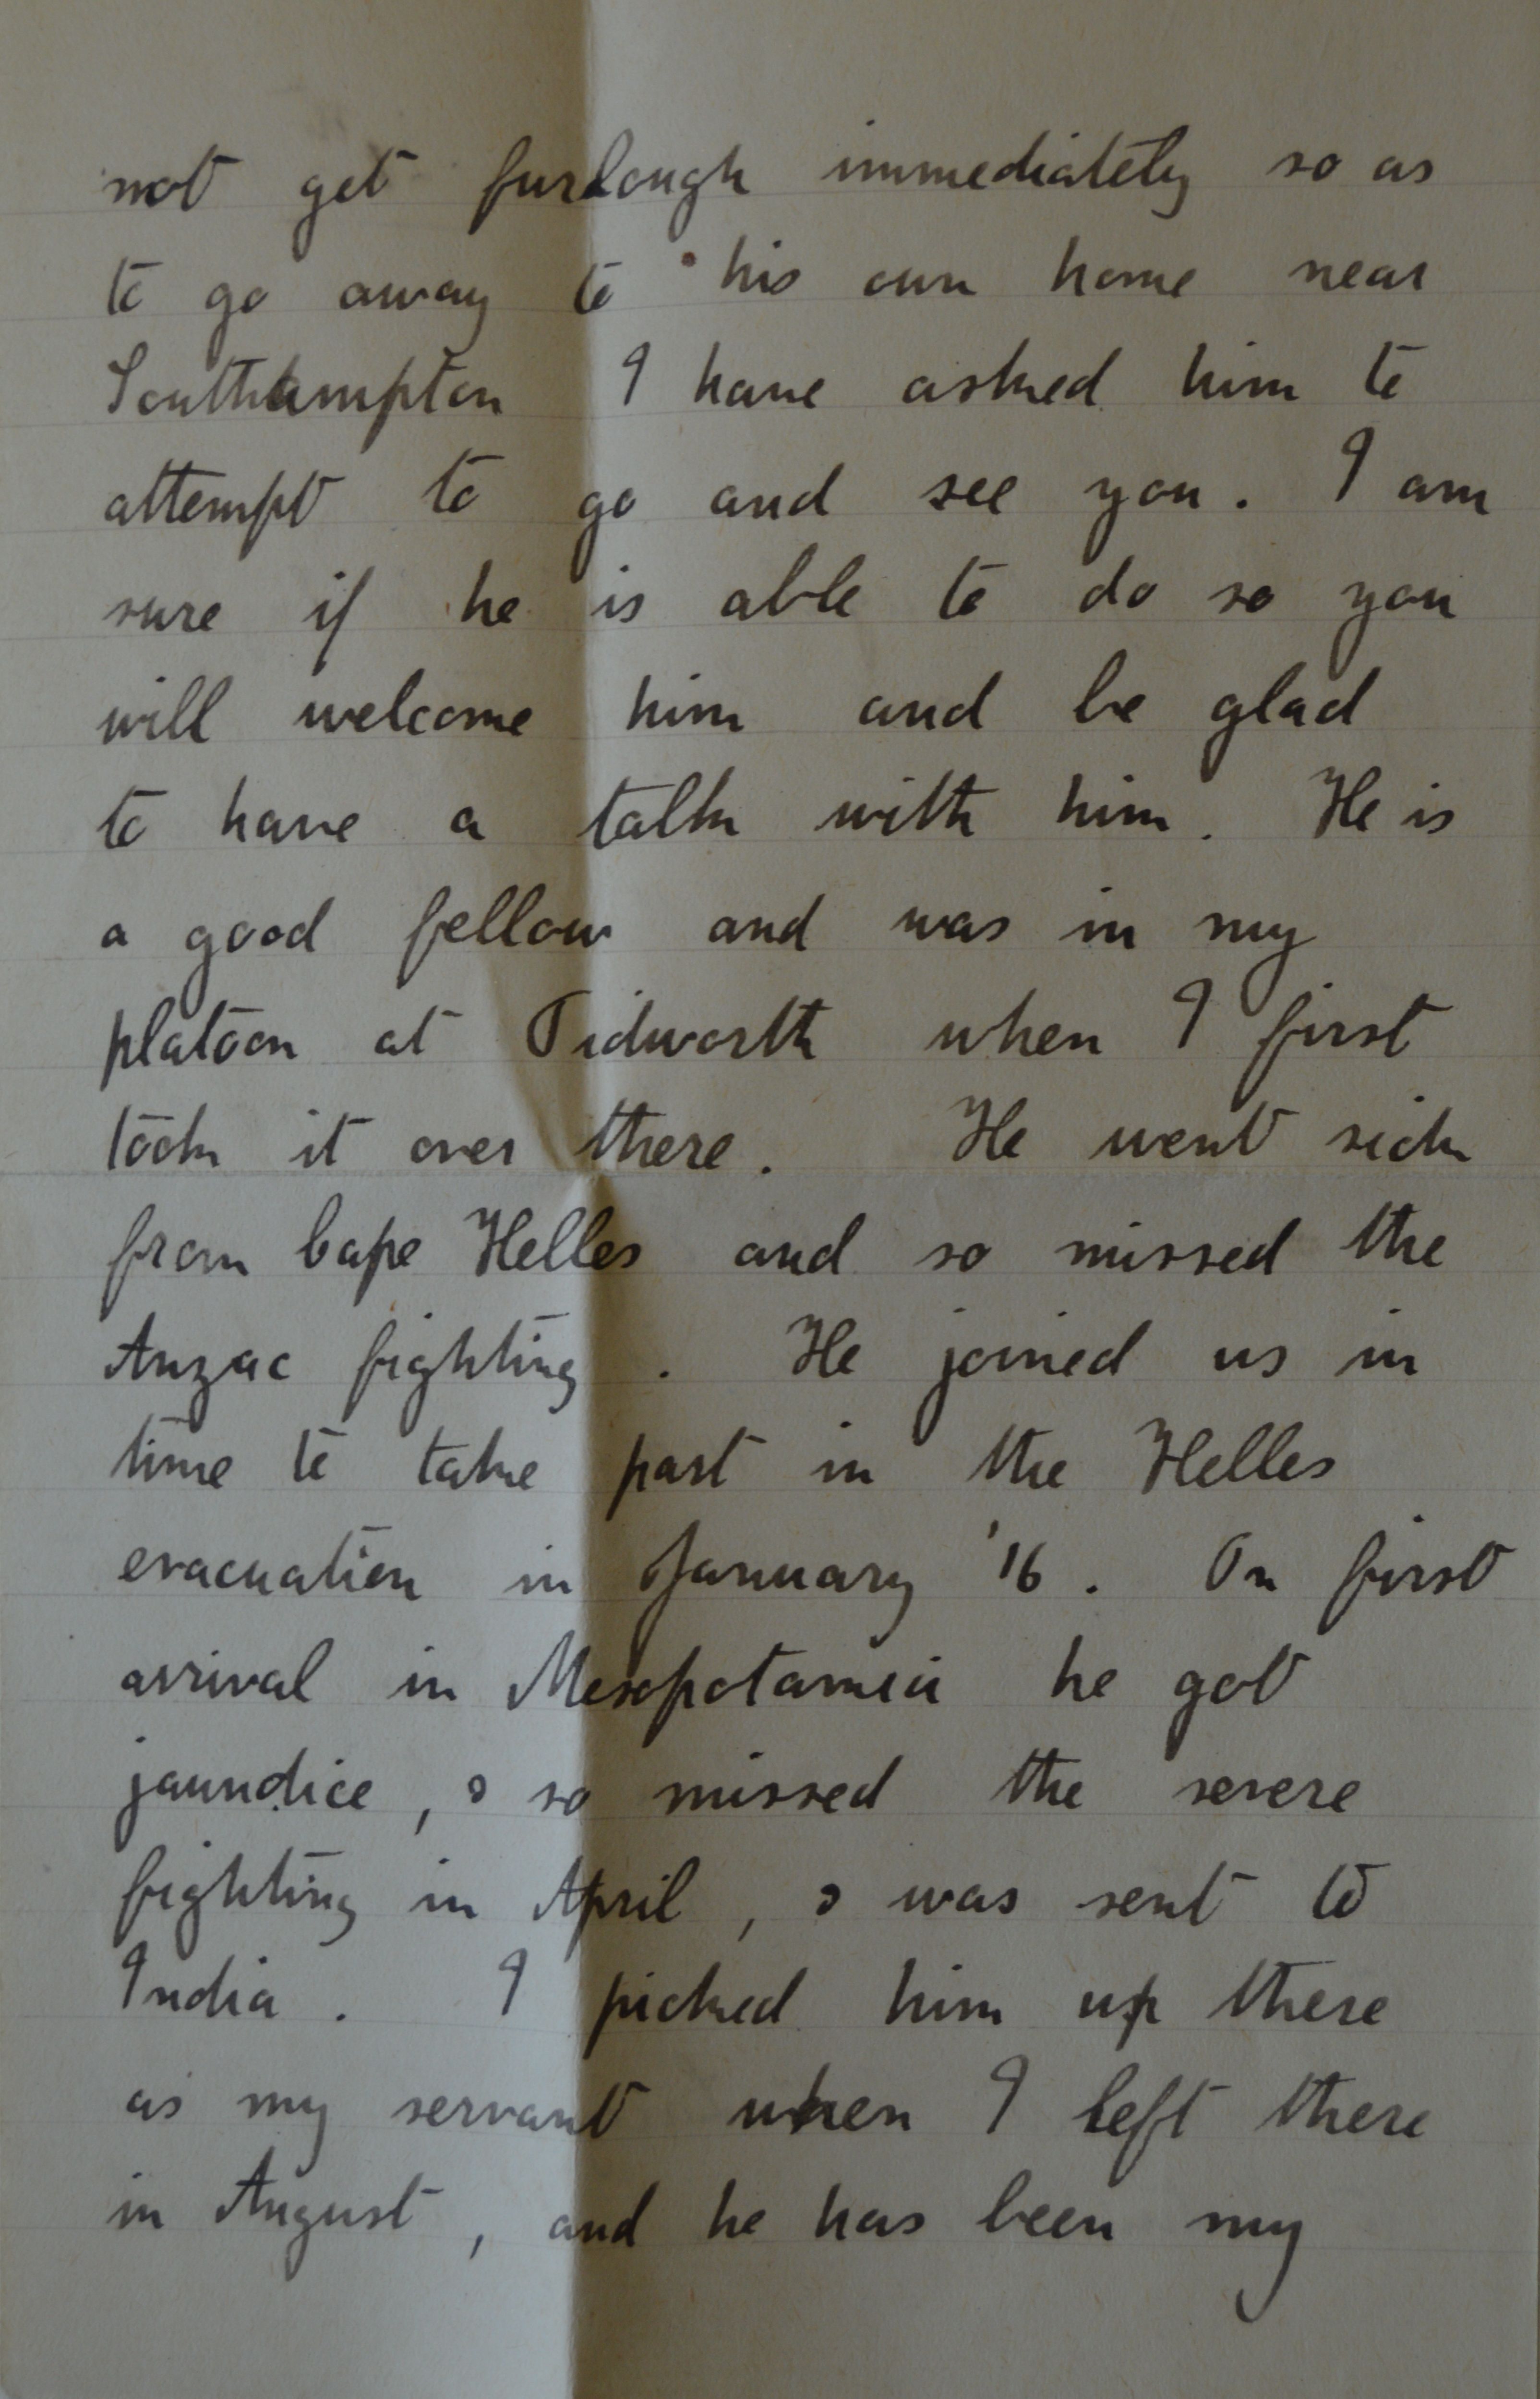 not get furlough immediately so as
to go away to his own home near
Southampton I have asked him to
attempt to go and see you. I am
sure if he is able to do so you
will welcome him and be glad
to have a talk with him. He is
a good fellow and was in my
platoon at Tidworth when I first
took it over there. He went sick
from Cape Helles and so missed the
Anzac fighting. He joined us in
time to take part in the Helles
evacuation in January '16. On first
arrival in Mesopotamia he got
jaundice, & so missed the severe
fighting in April, & was sent to
India. I picked him up there
as my servant when I left there
in August, and he has been my